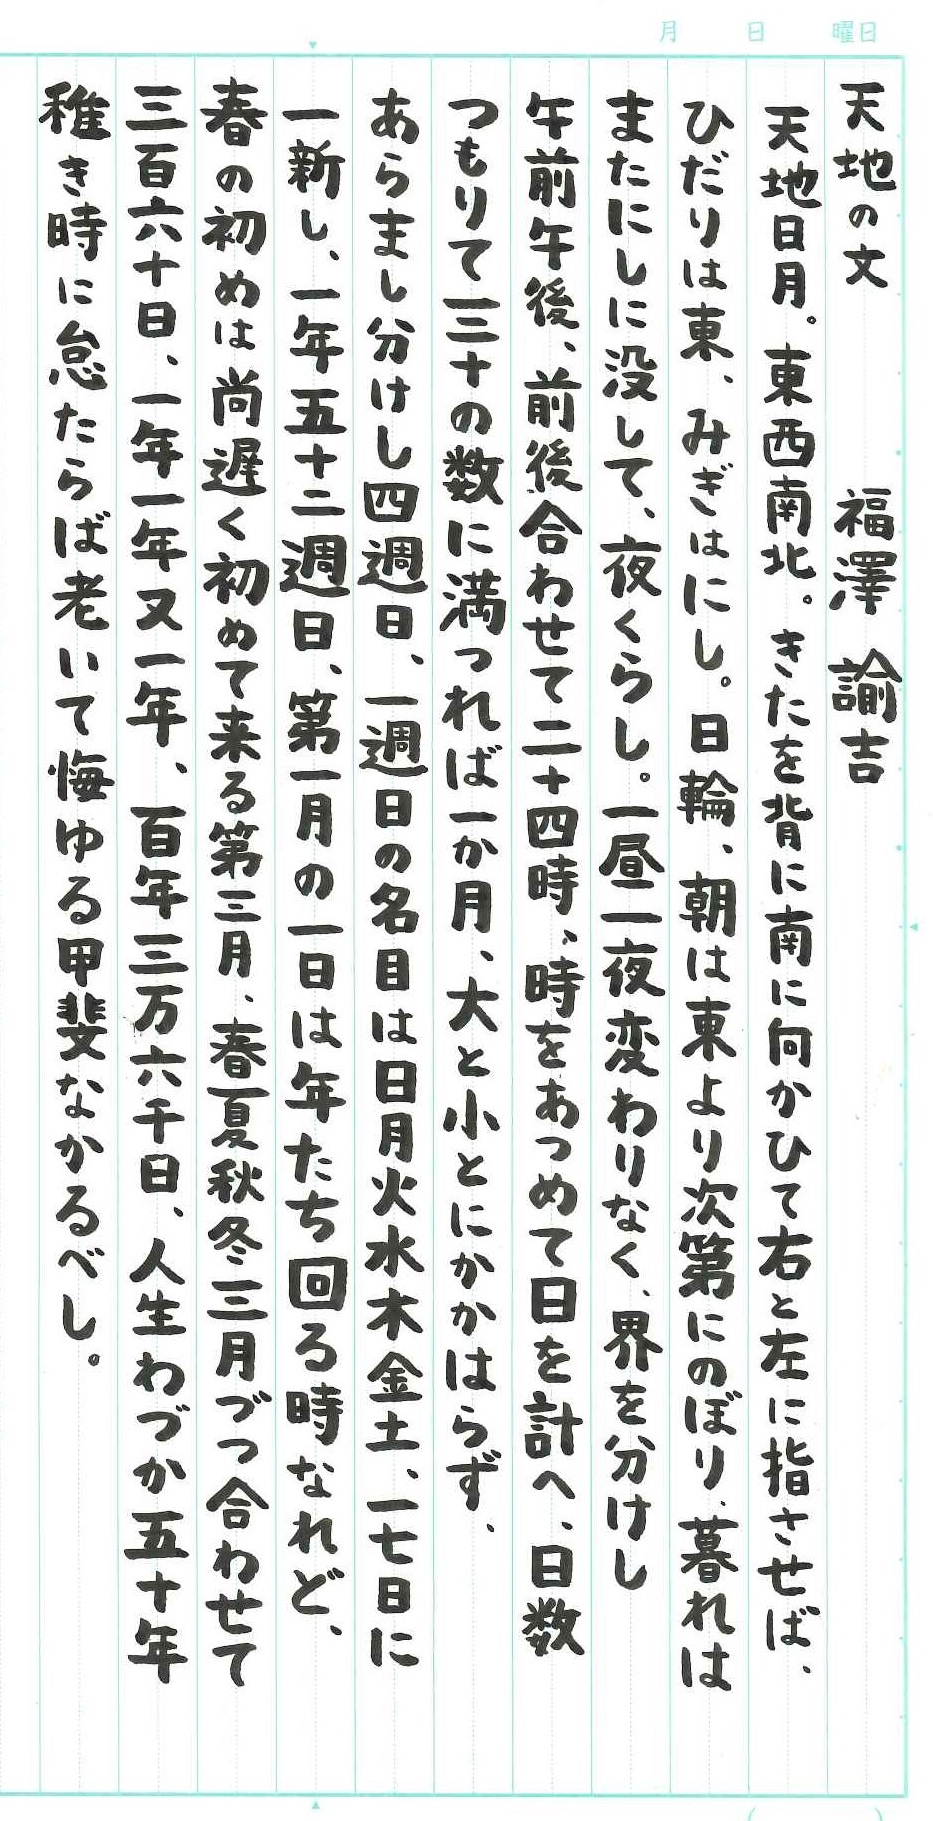 月 日 曜日
天地の文 福澤 諭吉
天地日月。東西南北。きたを背に南に向かひて右と左に指させば、
ひだりは東、みぎはにし。日輪、朝は東より次第にのぼり、暮れは
またにしに没して、夜くらし。一昼一夜変わりなく、界を分けし
午前午後、前後合わせて二十四時、時をあつめて日を計へ、日数
つもりて三十の数に満つれば一か月、大と小とにかかはらず、
あらまし分けし四週日、一週日の名目は日月火水木金土、一七日に
一新し、一年五十二週日、第一月の一日は年たち回る時なれど、
春の初めは尚遅く初めて来る第三月、春夏秋冬三月づつ合わせて
三百六十日、一年一年又一年、百年三万六千日、人生わづか五十年
稚き時に怠たらば老いて悔ゆる甲斐なかるべし。